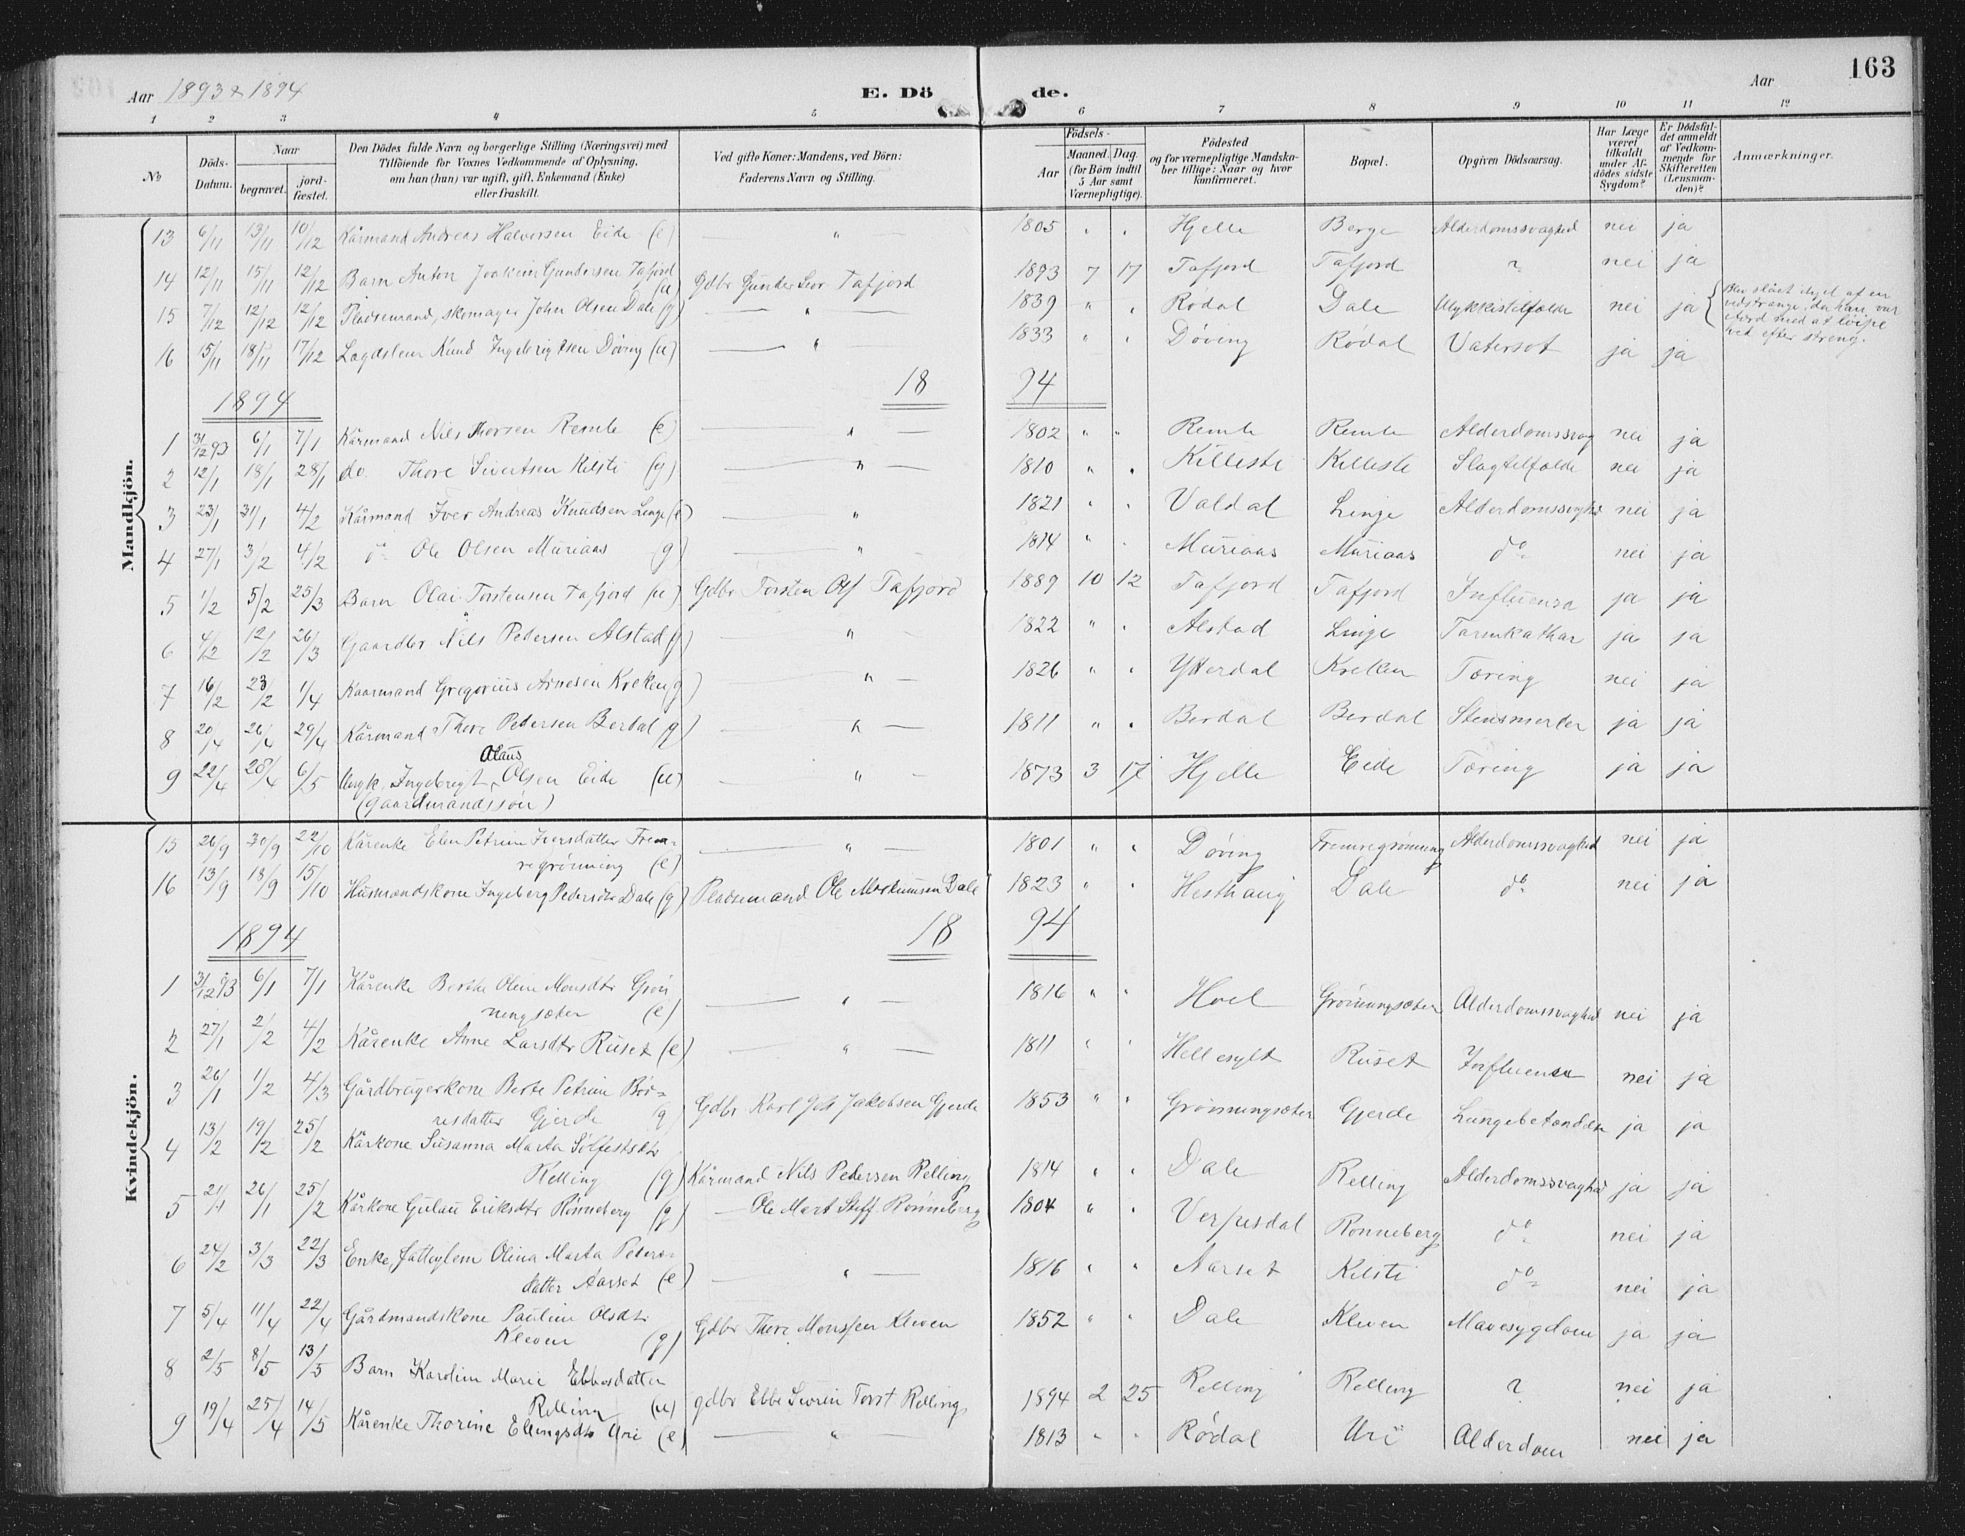 Aar 1893 & 1894 E. Dö de. Aar 163
1 2 3 4 5 6 7 8 9 10 11 12
№ Döds-Datum. Naar begravet. jord-fæstet. Den Dödes fulde Navn og borgerlige Stilling (Næringsvei) med Tilföiende for Voxnes Vedkommende af Oplysning, om han (hun) var ugift, gift, Enkemand (Enke) eller fraskilt. Ved gifte Koner: Mandens, ved Börn: Faderens Navn og Stilling. Födsels- Aar Maaned. Dag. (for Börn indtil 5 Aar samt Værnepligtige). Födested og for værnepligtige Mandskaber tillige: Naar og hvor konfirmeret. Bopæl. Opgiven Dödsaarsag. Har Læge været tilkaldt under Afdödes sidste Sygdom? Er Dödsfaldet anmeldt af Vedkommende for Skifteretten (Lensmanden)? Anmærkninger.
Mandkjön.
13 6/11 13/11 10/12 Kårmand Andreas Halvorsen Eide (e) — " — 1805 " " Hjelle Berge Alderdomssvaghed nei ja
14 12/11 15/11 12/12 Barn Anton Joakim Gundersen Tafjord (u) Gdbr Gunder Tafjord 1893 7 17 Tafjord Tafjord ? nei ja
15 7/12 12/12 12/12 Pladsemand, skomager John Olsen Dale (g) — " — 1839 " " Rødal Dale Ulykkestilfælde nei ja
16 15/11 18/11 17/12 Lægdslem Knud Ingebrigtsen Døving (u) — " — 1833 " " Døving Rødal Vatersot ja ja
1894 18 94
1 31/12 93 6/1 7/1 Kårmand Nils Thorsen Remle (e) — " — 1802 " " Remle Remle Alderdomssvag nei ja
2 12/1 18/1 28/1 do. Thore Sivertsen Kilsti (g) — " — 1810 " " Killesti Killesti Slagtilfælde nei ja
3 23/1 31/1 4/2 Kårmand Iver Andreas Knudsen Linge (e) — " 1821 " " Valdal Linge Alderdomssvaghed nei ja
4 27/1 3/2 4/2 do Ole Olsen Muriaas (g) — " — 1814 " " Muriaas Muriaas do nei ja
5 1/2 5/2 25/3 Barn Olai Torstensen Tafjord (u) Gdbr Torsten Tafjord 1889 10 12 Tafjord Tafjord Influensa ja ja
6 4/2 12/2 26/3 Gaardbr Nils Pedersen Alstad (g) — " — 1822 " " Alstad Linge Tarmkathar ja ja
7 16/2 23/2 1/4 Kaarmand Gregorius Arnesen Kreken (g) — " — 1826 " " Ytterdal Kreken Tæring nei ja
8 20/4 26/4 29/4 Kårmand Thore Pedersen Berdal (g) — " — 1811 " " Berdal Berdal Stensmerter ja ja
Olaus
9 22/4 28/4 6/5 Ungk. Ingebrigt Olsen Eide (u) — " — 1873 3 17 Hjelle Eide Tæring ja ja
(gaardmandssøn)
Kvindekjön.
15 26/9 30/9 22/10 Kårenke Elen Petrine Iversdatter Frem- — " — 1801 " " Døving Fremregrönning Alderdomssvaghed nei ja
regrönning (e)
16 13/9 18/9 15/10 Husmandskone Ingeborg Pedersdtr Dale (g) Pladsemand Ole Dale 1823 " " Hesthaug Dale do nei ja
1894 18 94
1 31/12 93 6/1 7/1 Kårenke Berthe Oline Monsdtr Grön — " — 1816 " " Hoel Grönningsæter Alderdomssvaghed nei ja
ningsæter (e)
2 27/1 2/2 4/2 Kårenke Anne Larsdtr Ruset (e) — " — 1811 " " Hellesylt Ruset Influensa nei ja
3 26/1 1/2 4/3 Gårdbrugerkone Berte Petrine Bör- Gdbr Karl Jakobsen Gjerde 1853 " " Grønningsæter Gjerde Lungebetændelse ja ja
resdatter Gjerde (g)
4 13/2 19/2 25/2 Kårkone Susanna Marta Sölfestsdtr
Relling (g) Kårmand Nils Pedersen Relling 1814 " " Dale Relling Alderdomssvaghed ja ja
5 21/1 26/1 25/2 Kårkone Gulau Eriksdtr Rønneberg (g) — Ole Mart Steff Rønneberg 1804 " " Verpesdal Rønneberg do nei ja
6 24/2 3/3 22/3 Enke, fattiglem Olina Marta Peders- — " — 1816 " " Aarset Kilsti do nei ja
datter Aarset (e)
7 5/4 11/4 22/4 Gårdmandskone Pauline Olsdtr Gdbr Thore Monssen Kleven 1852 " " Dale Kleven Mavesygdom ja ja
Kleven (g)
8 2/5 8/5 13/5 Barn Karoline Marie Ebbesdatter
Relling (u) gdbr Ebbe Severin Torst Relling 1894 2 25 Relling Relling ? nei ja
9 19/4 25/4 14/5 Kårenke Thorine Ellingsdtr Uri (e) — " — 1813 " " Rødal Uri Alderdom nei ja